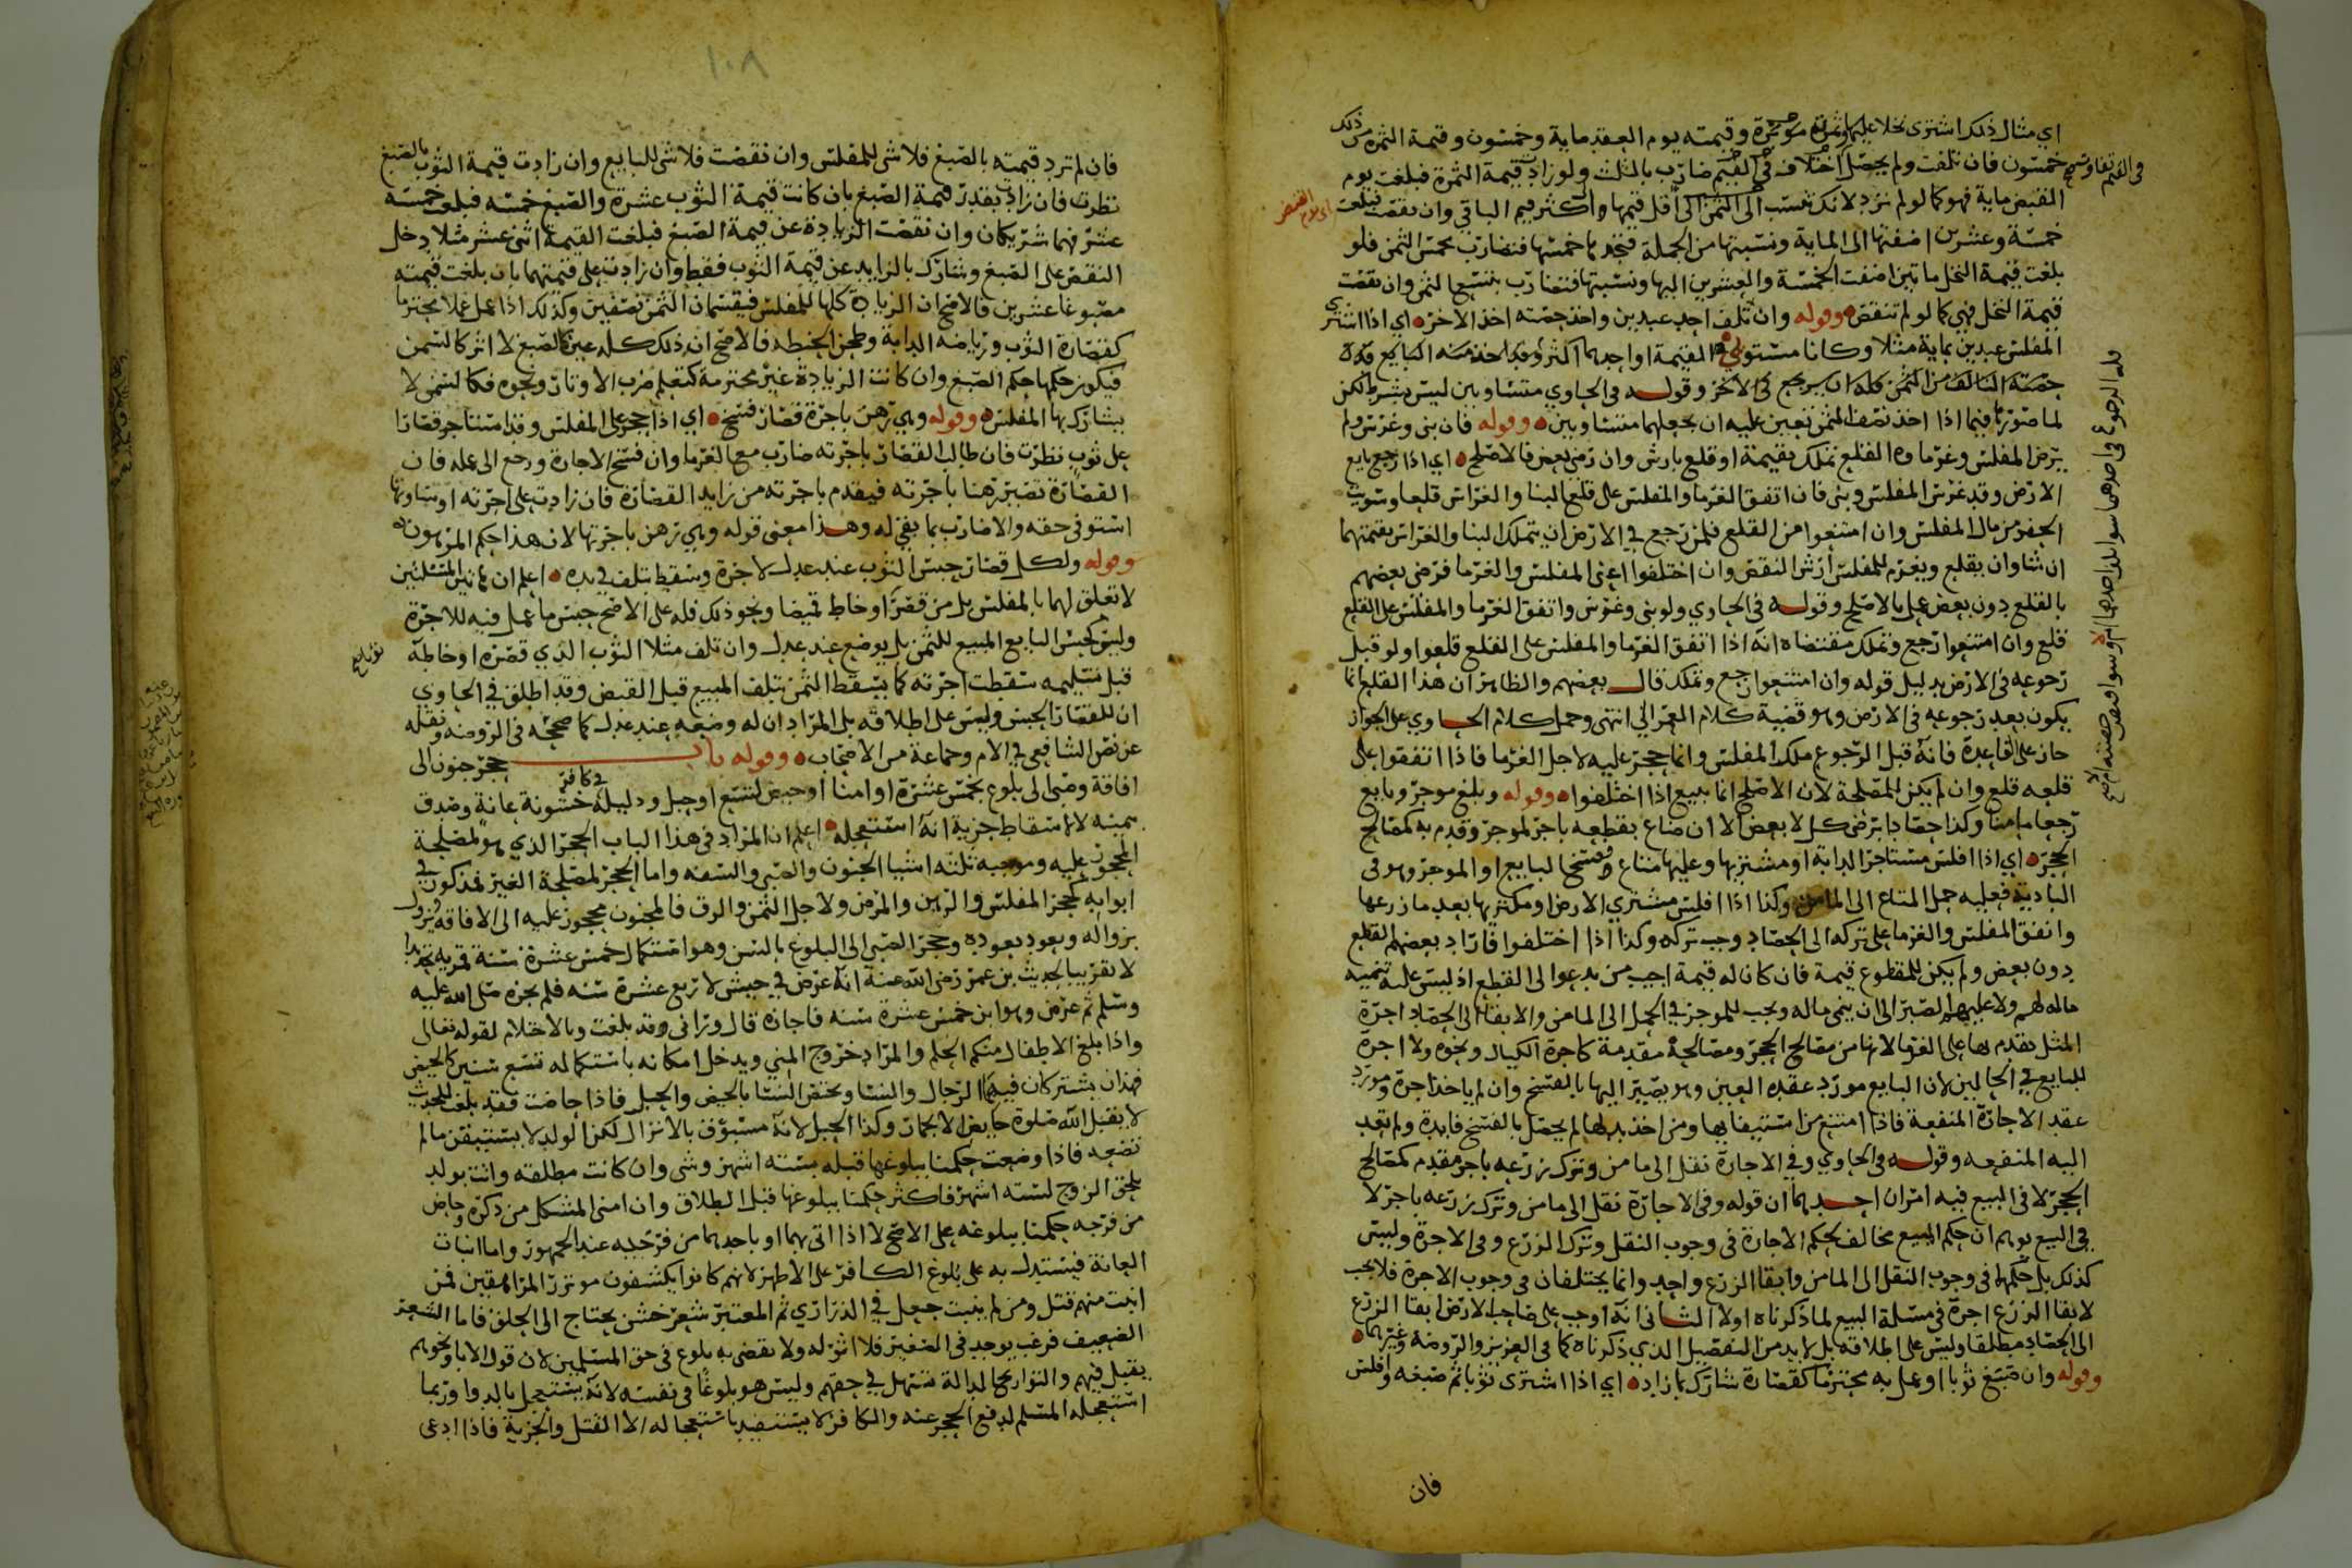 اي مثال ذلك اشترى نخلا عليها ثمرة مؤبرة وقيمته يوم العقد ماية وخمسون وقيمة الثمرة من ذلك
خمسون فان تلفت ولم يحصل اختلاف في القيم ضارب بالثلث ولو زادت قيمة الثمرة فبلغت يوم
القبض ماية فهو كما لو لم تزد لانك تنسب الى الثمن الى اقل قيمها واكثر قيم الباقي وان نقصت فبلغت
خمسة وعشرين اضفتها الى الماية ونسبتها من الجملة فتجدها خمسها فتضارب بخمس الثمن فلو
بلغت قيمة النخل مايتين اضفت الخمسة والعشرين اليها ونسبتها فتضارب بتسع الثمن وان نقصت
قيمة النخل فهي كما لو لم تنقص وقوله وان تلف احد عبدين واخذ حصته اخذ الاخر اي اذا اشترى
المفلس عبدين بماية مثلا وكانا مستويي القيمة او احدهما اكثر وقد اخذ منه البايع قدر
حصته التالف من الثمن فله ان يرجع في الاخر وقوله في الحاوي متساويين ليس بشرط لكن
لما صورها فيما اذا اخذ نصف الثمن تعين عليه ان يجعلهما متساويين وقوله فان بنى وغرس ولم
يرض المفلس وغرماوه القلع تملك بقيمة او قلع بارش وان رضي بعض فالاصلح اي اذا رجع بايع
الارض وقد غرس المفلس وبنى فان اتفق الغرما والمفلس على قلع البنا والغراس قلعا وسويت
الحفر من مال المفلس وان امتنعوا من القلع فلمن رجع في الارض ان يتملك البنا والغراس بقيمتهما
ان شا وان يقلع ويغرم للمفلس ارش النقص وان اختلفوا اعني المفلس والغرما فرضي بعضهم
بالقلع دون بعض عمل بالاصلح وقوله في الحاوي ولو بنى وغرس واتفق الغرما والمفلس على القلع
قلع وان امتنعوا رجع وتملك مقتضاه انه اذا اتفق الغرما والمفلس على القلع قلعوا ولو قبل
رجوعه في الارض بدليل قوله وان امتنعوا رجع وتملك قال بعضهم والظاهر ان هذا القلع انما
يكون بعد رجوعه في الارض وهو قضية كلام الغزالي انتهى وحمل كلام الحاوي على الجواز
جاز على القاعدة فانه قبل الرجوع ملك المفلس وانما حجر عليه لاجل الغرما فاذا اتفقوا على
قلعه قلع وان لم يكن للمصلحة لان الاصلح انما يبيع اذا اختلفوا وقوله وبلغ موجر وبايع
رجعا مامنا وكذا حصادا برضى كل لا بعض الا ان ضاع بقطعه باجر لموجر وقدم به كمصالح
الحجر اي اذا افلس مستاجر الدابة او مشتريها وعليها متاع وفسخ البايع او الموجر وهو في
البادية فعليه حمل المتاع الى المامن وكذا اذا افلس مشتري الارض او مكتريها بعد ما زرعها
واتفق المفلس والغرما على تركه الى الحصاد وجب تركه وكذا اذا اختلفوا فاراد بعضهم القطع
دون بعض ولم يكن للمقطوع قيمة فان كان له قيمة اجيب من يدعوا الى القطع اذ ليس عليه تنمية
ماله لهم ولا عليهم الصبر الى ان ينمي ماله ويجب للموجر في الحمل الى المامن والابقا الى الحصاد اجرة
المثل يقدم بها على الغرما لانها من مصالح الحجر ومصالحه مقدمة كاجرة الكيال ونحوه ولا اجرة
للبايع في الحالين لان البايع مورد عقده العين وهو يصير اليها بالفسخ وان لم ياخذ اجرة ومورد
عقد الاجارة المنفعة فاذا امتنع من استيفايها ومن اخذ بدلها لم يحصل بالفسخ فايدة ولم تعد
اليه المنفعه وقوله في الحاوي وفي الاجارة نقل الى مامن وترك زرعه باجر مقدم كمصالح
الحجر لا في البيع فيه امران احدهما ان قوله وفي الاجارة نقل الى مامن وترك زرعه باجر لا
في البيع يوهم ان حكم المبيع مخالف لحكم الاجارة في وجوب النقل وترك الزرع وفي الاجرة وليس
كذلك بل حكمهما في وجوب النقل الى المامن وابقا الزرع واحد وانما يختلفان في وجوب الاجرة فلا يجب
لابقا الزرع اجرة في مسئلة البيع لما ذكرناه اولا الثاني انه اوجب على صاحب الارض ابقا الزرع
الى الحصاد مطلقا وليس على اطلاقه بل لا بد من التفصيل الذي ذكرناه كما في العزيز والروضة وغيرهما
وقوله وان صبغ ثوبا او عمل به محترما كقصارة شارك بما زاد اي اذا اشترى ثوبا ثم صبغه وافلس
فان
فله الرجوع في احدهما سوا
١٠٨
فان لم ترد قيمته بالصبغ فلا شي للمفلس وان نقصت فلا شي للبايع وان زادت قيمة الثوب بالصبغ
نظرت فان زادت بقدر قيمة الصبغ بان كانت قيمة الثوب عشرة والصبغ خمسة فبلغت خمسة
عشر فهما شريكان وان نقصت الزيادة عن قيمة الصبغ فبلغت القيمة اثنى عشر مثلا دخل
النقص على الصبغ وشارك بالزايد عن قيمة الثوب فقط وان زادت على قيمتهما بان بلغت قيمته
مصبوغا عشرين فالاصح ان الزيادة كلها للمفلس فيقسمان الثمن نصفين وكذلك اذا عمل عملا محترما
كقصارة الثوب ورياضة الدابة وطحن الحنطة فالاصح ان ذلك كله عين كالصبغ لا اثر كالسمن
فيكون حكمها حكم الصبغ وان كانت الزيادة غير محترمة كتعليم ضرب الاوتار ونحوه فكالسمن لا
يشارك بها المفلس وقوله وهي رهن باجرة قصار فسخ اي اذا حجر على المفلس وقد استاجر قصارا
على ثوب نظرت فان طالب القصار باجرته ضارب مع الغرما وان فسخ الاجارة ورجع الى عمله فان
القصارة تصير رهنا باجرته فيقدم باجرته من زايد القصارة فان زادت على اجرته او ساوتها
استوفى حقه والا ضارب بما بقي له وهذا معنى قوله وهي رهن باجرتها لان هذا حكم المرهون
وقوله ولكل قصار حبس الثوب عند عدل لاجرة وسقط بتلف في يده اعلم ان هاتين المسئلتين
لا تعلق لهما بالمفلس بل من قصر او خاط قميصا ونحو ذلك فله على الاصح حبس ما عمل فيه للاجرة
وليس كحبس البايع المبيع للثمن بل يوضع عند عدل وان تلف مثلا الثوب الذي قصره او خاطه
قبل تسليمه سقطت اجرته كما يسقط الثمن بتلف المبيع قبل القبض وقد اطلق في الحاوي
ان للقصار الحبس وليس على اطلاقه بل المراد ان له وضعه عند عدل كما صححه في الروضة ونقله
عن نص الشافعي في الام وجماعة من الاصحاب وقوله باب حجر جنون الى
افاقة وصبى الى بلوغ بخمس عشرة او امنا او حيض لتسع او حبل ودليله في كافر خشونة عانة وصدق
بيمينه لا لاسقاط جزية انه استعجله اعلم ان المراد في هذا الباب الحجر الذي هو لمصلحة
المحجور عليه وموجبه ثلثه اشيا الجنون والصبى والسفه واما الحجر لمصلحة الغير فمذكور في
ابوابه كحجر المفلس والرهن والمرض ولاجل الثمن والرق فالمجنون محجور عليه الى الافاقة فيزول
بزواله ويعود بعوده وحجر الصبي الى البلوغ بالسن وهو استكمال خمس عشرة سنة قمرية تحديدا
لا تقريبا لحديث بن عمر رضي الله عنه انه عرض في جيش لاربع عشرة سنه فلم يجزه صلى الله عليه
وسلم ثم عرض وهو ابن خمس عشرة سنه فاجازه قال وراني وقد بلغت وبالاحتلام لقوله تعالى
واذا بلغ الاطفال منكم الحلم والمراد خروج المني ويدخل امكانه باستكماله تسع سنين كالحيض
فهذان يشترك فيهما الرجال والنسا ويختص النسا بالحيض والحبل فاذا حاضت فقد بلغت للحديث
لا يقبل الله صلوة حايض الا بخمار وكذا الحبل لانه مسبوق بالانزال لكن الولد لا يستيقن مالم
تضعه فاذا وضعت حكمنا ببلوغها قبله بسته اشهر وشي وان كانت مطلقه واتت بولد
يلحق الزوج لستة اشهر فاكثر حكمنا ببلوغها قبل الطلاق وان امنى المشكل من ذكره وحاض
من فرجه حكمنا ببلوغه على الاصح لا اذا اتى بهما او باحدهما من فرجيه عند الجمهور واما انبات
العانة فيستدل به على بلوغ الكافر على الاظهر لانهم كانوا يكشفون موتزر المراهقين فمن
انبت منهم قتل ومن لم ينبت جعل في الذراري ثم المعتبر شعر خشن يحتاج الى الحلق فاما الشعر
الضعيف فزغب يوجد في الصغير فلا اثر له ولا يقضى به بلوغ في حق المسلمين لان قول الابا ونحوهم
يقبل فيهم والتواريخ الدالة تسهل في حقهم وليس هو بلوغا في نفسه لانه يستعجل بالدوا وربما
استعجله المسلم لدفع الحجر عنه والكافر لا يستفيد باستعجاله الا القتل والجزية فاذا ادعى